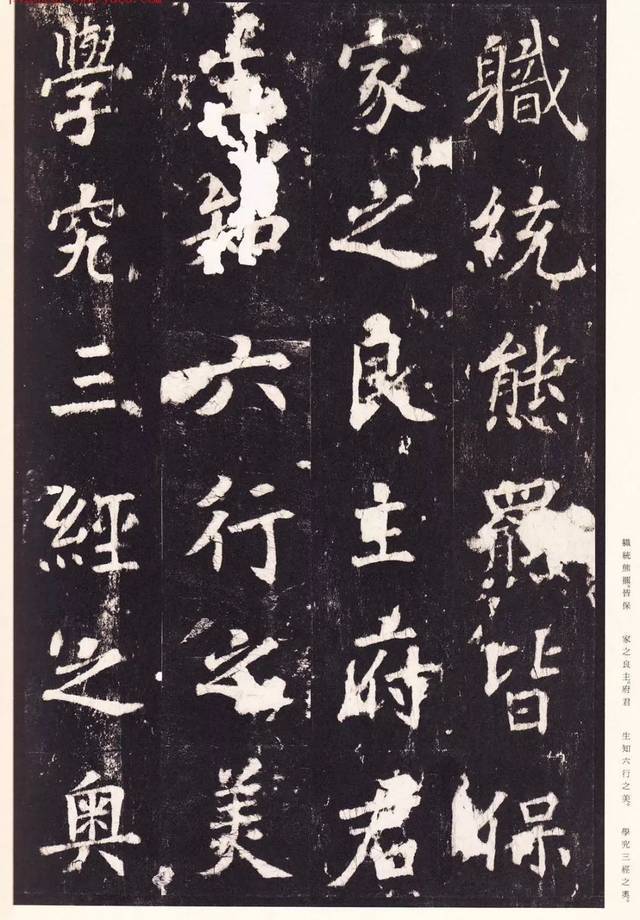 職統熊羆皆保
家之良主府君
生知六行之美
學究三經之奧
職統熊羆。皆保 家之良主。府君 生知六行之美。 學究三經之奧。